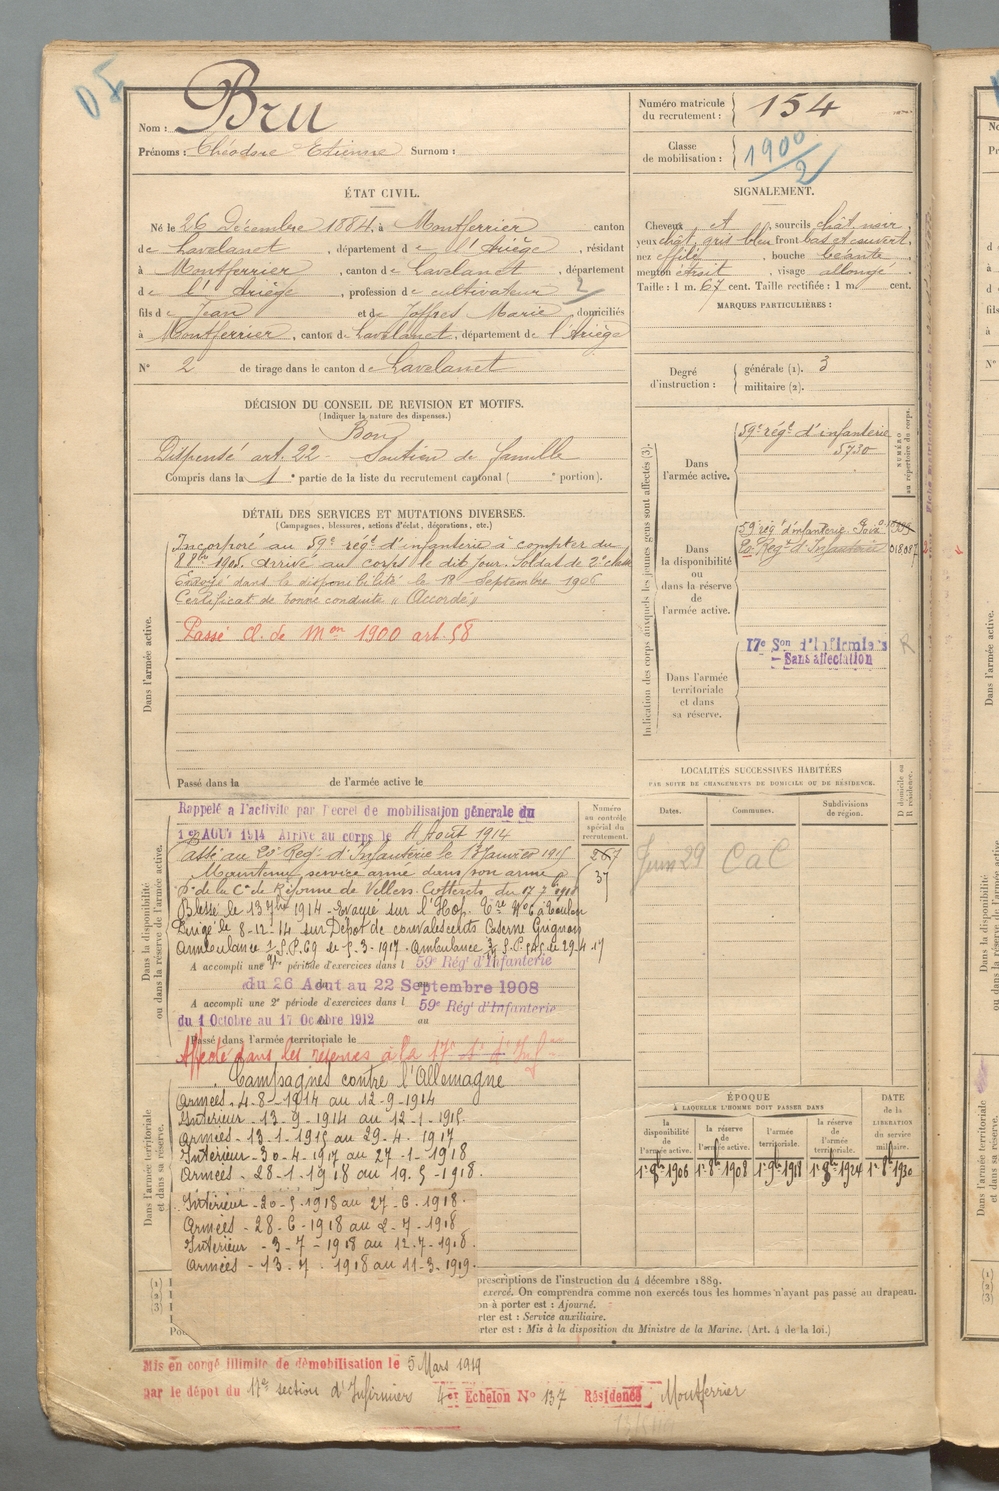 Nom : Bru
Prénoms : Théodore Etienne Surnom :
Numéro matricule du recrutement : 154
Classe de mobilisation : 1900/2
ÉTAT CIVIL.
Né le 26 Décembre 1884, à Montferrier canton
de Lavelanet, département de l'Ariège, résidant
à Montferrier, canton de Lavelanet, département
de l'Ariège, profession de cultivateur 2
fils de Jean et de Joffres Marie, domiciliés
à Montferrier, canton de Lavelanet, département de l'Ariège
N° 2 de tirage dans le canton de Lavelanet
SIGNALEMENT.
Cheveux et, sourcils chât noir,
yeux chât gris bleu front bas et couvert,
nez effilé, bouche béante,
menton étroit, visage allongé.
Taille : 1 m. 67 cent. Taille rectifiée : 1 m. cent.
MARQUES PARTICULIÈRES :
Degré d'instruction :
générale (1). 3
militaire (2).
DÉCISION DU CONSEIL DE REVISION ET MOTIFS.
(Indiquer la nature des dispenses.)
Bon
Dispensé art. 22 - Soutien de famille
Compris dans la 1e partie de la liste du recrutement cantonal (e portion).
DÉTAIL DES SERVICES ET MUTATIONS DIVERSES.
(Campagnes, blessures, actions d'éclat, décorations, etc.)
Dans l'armée active.
Incorporé au 59e régt d'infanterie à compter du
8 8bre 1905. Arrivé au corps le dit jour. Soldat de 2e classe
Envoyé dans la disponibilité le 18 Septembre 1906
Certificat de bonne conduite "Accordé"
Passé Cl. de Mon 1900 art. 58
Passé dans la de l'armée active le
Indication des corps auxquels les jeunes gens sont affectés (3).
NUMÉRO au répertoire du corps.
Dans l'armée active.
59e régt d'infanterie
5730
Dans la disponibilité ou dans la réserve de l'armée active.
59 régt d'infanterie
20 Regt d'Infanterie 018087
Dans l'armée territoriale et dans sa réserve.
17e Son d'Infirmiers R
Sans affectation
LOCALITÉS SUCCESSIVES HABITÉES
PAR SUITE DE CHANGEMENTS DE DOMICILE OU DE RÉSIDENCE.
D domicile ou R résidence.
Dates. Communes. Subdivisions de région.
Juin 29 C a C
Dans la disponibilité ou dans la réserve de l'armée active.
Numéro au contrôle spécial du recrutement.
267
37
Rappelé à l'activité par Décret de mobilisation générale du
1er AOUT 1914 Arrivé au corps le 4 Août 1914
Passé au 20e Regt d'Infanterie le 13 Janvier 1915
Maintenu service armé dans son arme
de la Con de Réforme de Villers Cotterets du 17 7 1918
Blessé le 13 7bre 1914 - Evacué sur l'Hop. Tre N° 6 à Toulon
Dirigé le 8-12-14 sur Dépot de convalescents Caserne Grignan
A accompli une 1re période d'exercices dans l 59e Régt d'Infanterie
du 26 Aout au 22 Septembre 1908
A accompli une 2e période d'exercices dans l 59e Régt d'Infanterie
du 1 Octobre au 17 Octobre 1912 au
Passé dans l'armée territoriale le
Affecté dans les réserves à la 17e
Dans l'armée territoriale et dans sa réserve.
Campagnes contre l'Allemagne
Armées - 4-8-1914 au 12-9-1914
Intérieur - 13-9-1914 au 12-1-1915.
Armées - 13-1-1915 au 29-4-1917
Intérieur - 30-4-1917 au 27-1-1918
Armées - 28-1-1918 au 19-5-1918.
Intérieur - 20-5-1918 au 27-6-1918.
Armées - 28-6-1918 au 2-7-1918
Intérieur - 3-7-1918 au 12-7-1918.
Armées - 13-7-1918 au 11-3-1919.
ÉPOQUE
À LAQUELLE L'HOMME DOIT PASSER DANS
DATE de la LIBÉRATION du service militaire.
la disponibilité de l'armée active. la réserve de l'armée active. l'armée territoriale. la réserve de l'armée territoriale.
1er 8bre 1906 1er 8bre 1908 1er 9bre 1918 1er 8bre 1924 1er 8bre 1930
(1)
(2)
(3)
prescriptions de l'instruction du 4 décembre 1889.
exercé. On comprendra comme non exercés tous les hommes n'ayant pas passé au drapeau.
on à porter est : Ajourné.
rter est : Service auxiliaire.
rter est : Mis à la disposition du Ministre de la Marine. (Art. 4 de la loi.)
Mis en congé illimité de démobilisation le 5 Mars 1919
par le dépot du 17e section d'Infirmiers 4er Echelon N° 137 Résidence Montferrier